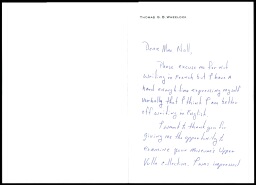 Thomas G. B. Wheelock
Dear Mme Noll,
Please excuse me for not
writing in French but I have a
hard enough time expressing myself
verbally that I think I am better
off writing in English.
I want to thank you for
giving me the opportunity to
examine your museum's Upper
Volta collection. I was impressed